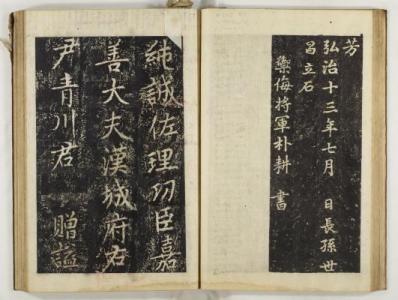 芳
弘治十三年七月 日長孫世
昌立石
禦侮将軍朴耕 書
純誠佐理功臣嘉
善大夫漢城府右
尹青川君 贈謚